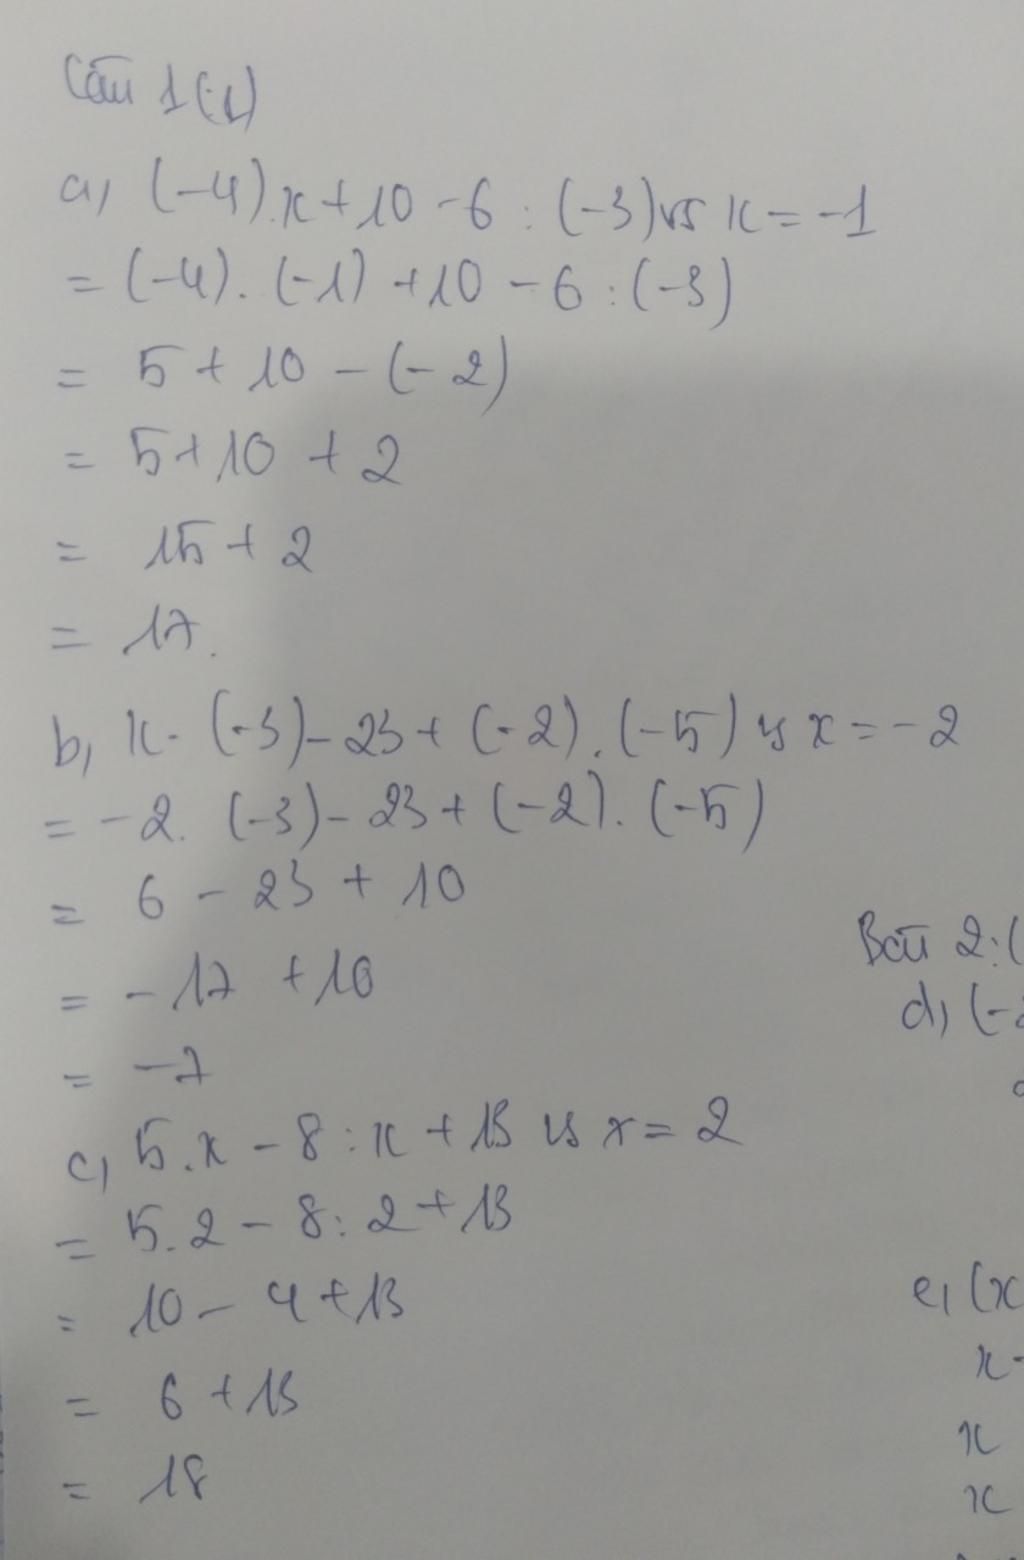 Câu 1 (1)
a, (-4).x + 10 - 6 : (-3) vs x = -1
= (-4). (-1) + 10 - 6 : (-3)
= 5 + 10 - (-2)
= 5 + 10 + 2
= 15 + 2
= 17.
b, x. (-3) - 23 + (-2). (-5) vs x = -2
= -2. (-3) - 23 + (-2). (-5)
= 6 - 23 + 10
= -17 + 10
= -7
c, 5.x - 8 : x + 13 vs x = 2
= 5.2 - 8 : 2 + 13
= 10 - 4 + 13
= 6 + 13
= 18
Bài 2: (
d, (-
e, (x
x -
x
x